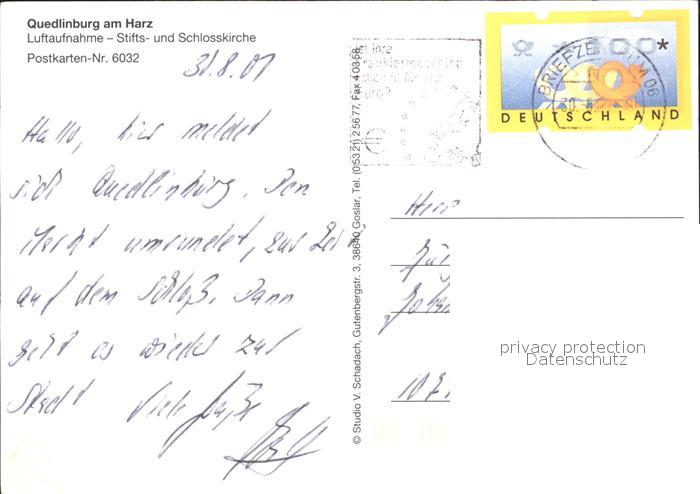 Quedlinburg am Harz
Luftaufnahme – Stifts- und Schlosskirche
Postkarten-Nr. 6032
31.8.01
Hallo, hier meldet
sich Quedlinburg. Den
Markt umrundet, zur Zeit
auf dem Schloß. Dann
geht es wieder zur
Stadt Viele Grüße
© Studio V. Schadach, Gutenbergstr. 3, 38640 Goslar, Tel. (05321) 25677, Fax 40358
BRIEFZENTRUM 06
DEUTSCHLAND
Herr
Jür
107
privacy protection
Datenschutz